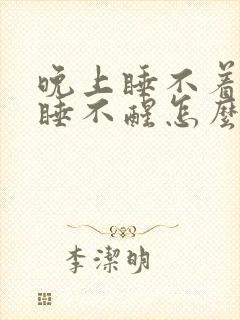 晚上睡不着
睡不醒怎麼
李潔明